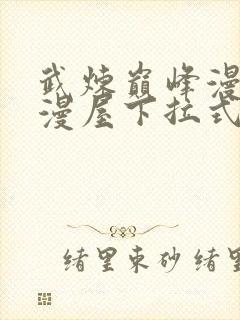 武炼巅峰漫
漫屋下拉式
绪里束砂绪里